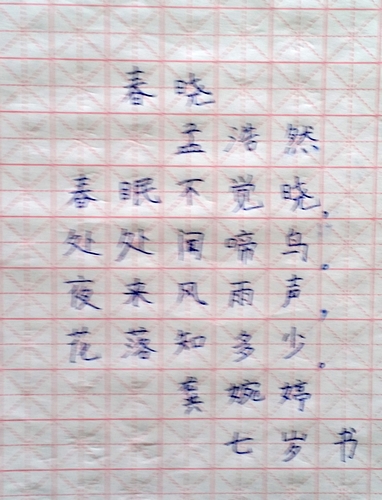 春晓
孟浩然
春眠不觉晓，
处处闻啼鸟。
夜来风雨声，
花落知多少。
龚婉婷
七岁书